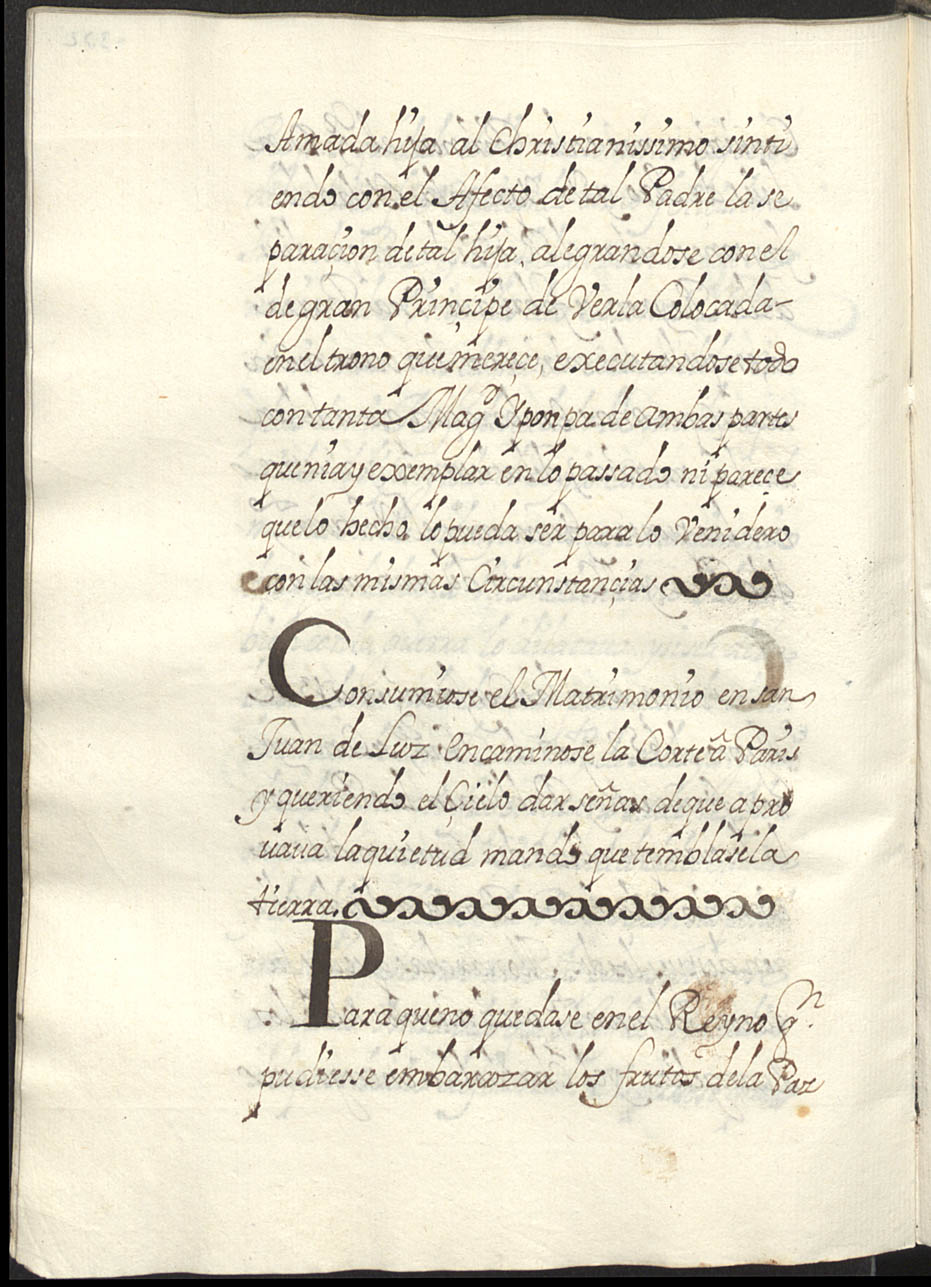 Amada hija al Christianissimo sinti
endo con el Afecto de tal Padre la se
paraçion de tal hija, alegrandose con el
de gran Prinçipe de Verla Colocada
en el trono que mereçe, executandose todo
con tanta Magd Y ponpa de ambas partes
que ni ay exemplar en lo passado ni pareçe
que lo hecho lo pueda ser para lo Venidero
con las mismas Circunstançias
Consumiose el Matrimonio en san
Juan de Luz encaminose la Corte a Paris
y queriendo el Çielo dar señas de que apro
vaua la quietud mando que temblase la
tierra.
Para que no quedase en el Reyno qn.
pudiesse embarazar los frutos de la Paz